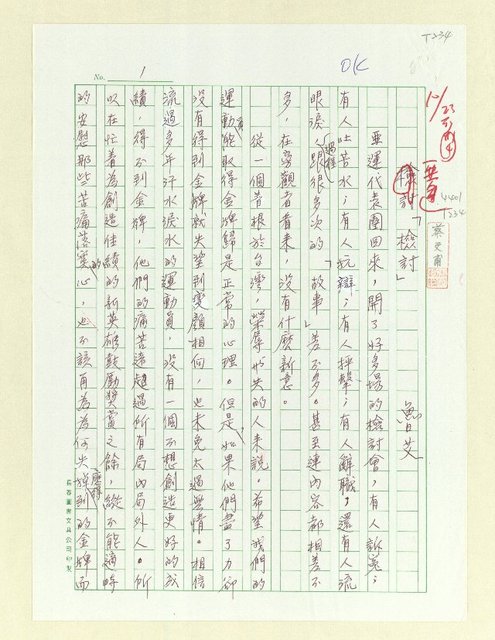 T234
OK
No. 1
10/23
4401
T234
蔡文甫
檢討「檢討」
魯艾
亞運代表團回來，開了好多場的檢討會，有人訴冤；
有人吐苦水；有人抗辯；有人抨擊，有人辭職，還有人流
眼淚，過程跟很多次的「故事」差不多。甚至連內容都相差不
多，在旁觀者看來，沒有什麼新意。
從一個昔根於台灣，榮辱與共的人來說。希望我們的
運動員能取得金牌歸是正常的心理。但是，如果他們盡了力卻
沒有得到金牌就失望到變顏相向，也未免太過無情。相信
流過多年汗水淚水的運動員，沒有一個不想創造更好的成
績，得不到金牌，他們的痛苦遠超過所有局內局外人。所
以在忙着為創造佳績的新英雄鼓勵獎賞之餘，縱不能適時
的安慰那些苦痛落寞的心，也不該再為為何失掉應得到的金牌而
長春圖書文具公司印製